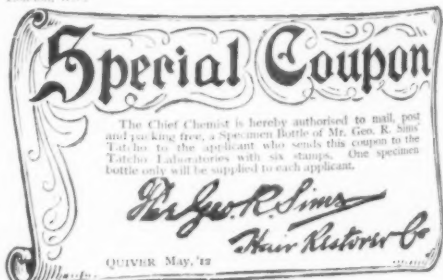 Special Coupon
The Chief Chemist is hereby authorised to mail, post
and packing free, a Specimen Bottle of Mr. Geo. R. Sims'
Tatcho to the applicant who sends this coupon to the
Tatcho Laboratories with six stamps. One specimen
bottle only will be supplied to each applicant.
The Geo. R. Sims
Hair Restorer Co
QUIVER May, '12